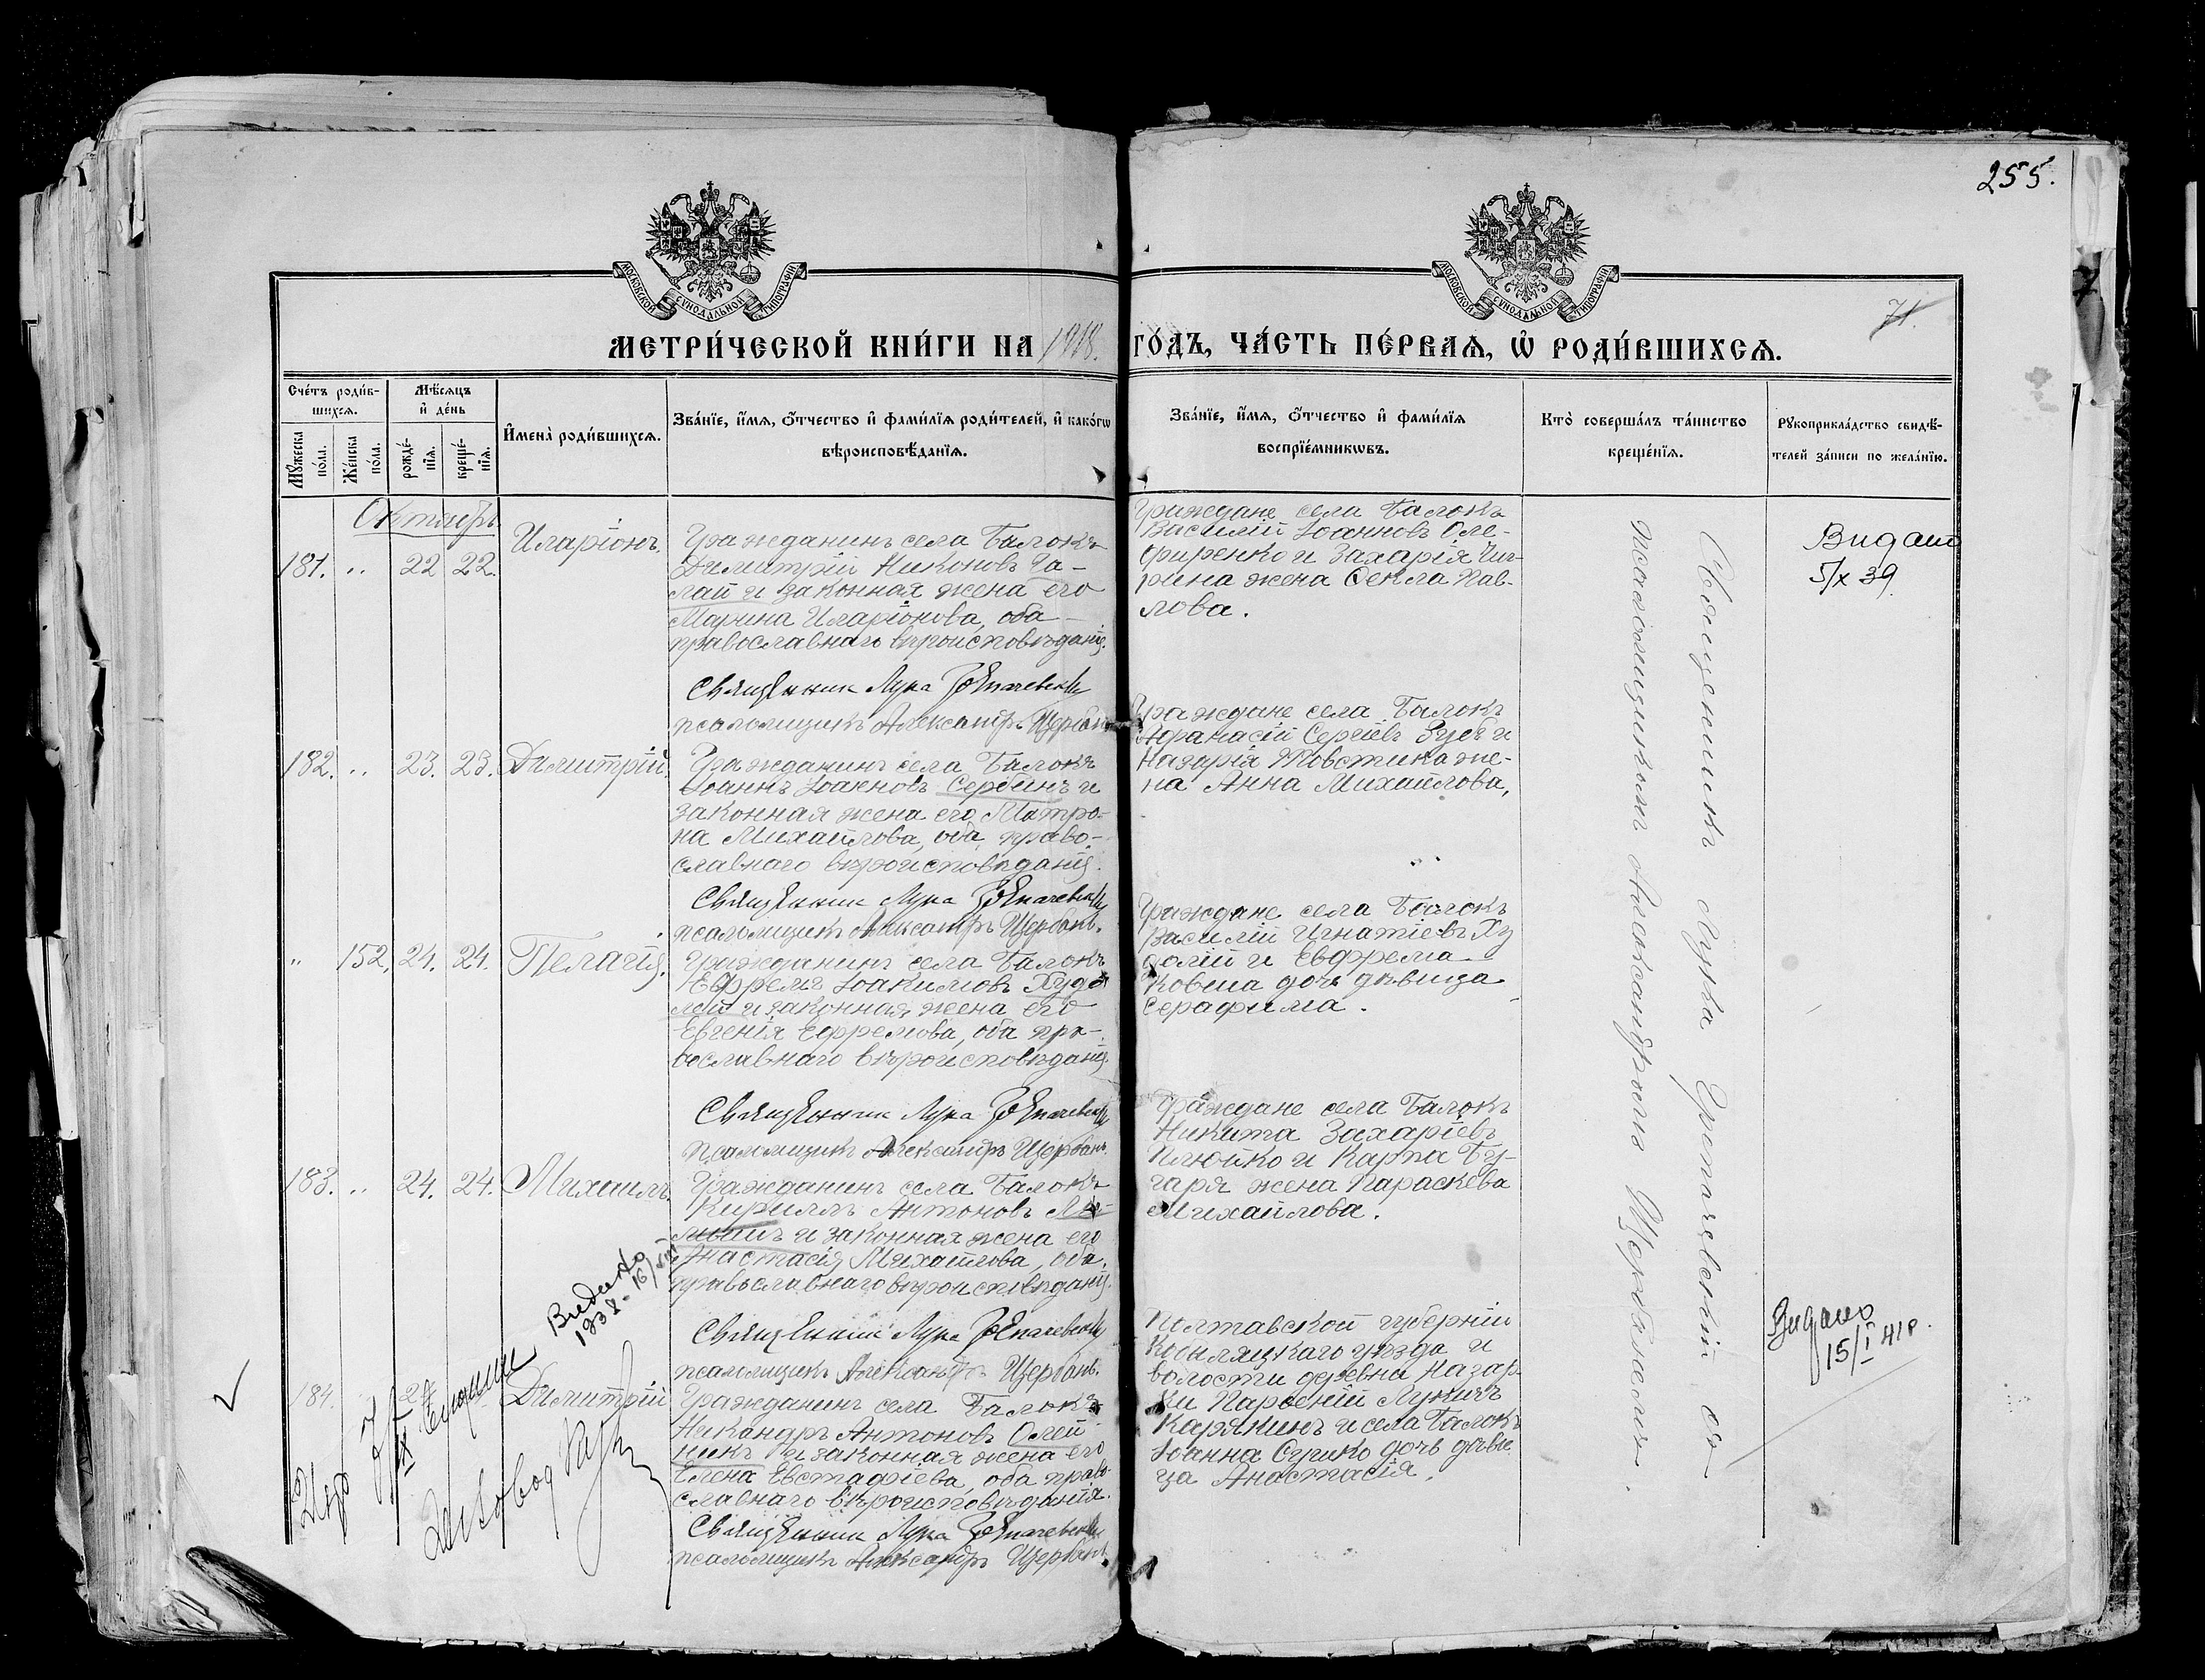 255.
71.
МОСКОВСКОЙ СУНОДАЛЬНОЙ ТИПОГРАФІИ
МОСКОВСКОЙ СУНОДАЛЬНОЙ ТИПОГРАФІИ
МЕТРИ́ЧЕСКОЙ КНИ́ГИ НА 1918. ГО́ДЪ, ЧА́СТЬ ПЕ́РВАѦ, Ѡ҆ РОДИ́ВШИХСѦ.
Сче́тъ роди́вшихсѧ.
Мꙋ́жеска по́ла.
Же́нска по́ла.
Мѣ́сѧцъ и҆ де́нь
рожде́нїѧ.
креще́нїѧ.
И҆мена̀ роди́вшихсѧ.
Зва́нїе, и҆́мѧ, ѻ҆́тчество и҆ фами́лїѧ роди́телей, и҆ како́гѡ
вѣроисповѣ́данїѧ.
Зва́нїе, и҆́мѧ, ѻ҆́тчество и҆ фами́лїѧ
воспрїе́мникѡвъ.
Кто̀ соверша́лъ та́инство
креще́нїѧ.
Рꙋкоприкла́дство свидѣ́-
телей за́писи по жела́нїю.
Октябрь
181. „ 22 22. Иларіонъ.
Гражданинъ села Балокъ
Димитрій Никоновъ Га-
лай и законная жена его
Марина Иларіонова, оба
православнаго вѣроисповѣданія.
Священник Лука
псаломщикъ Александръ Щербань
Граждане села Балокъ
Василій Іоанновъ Оле-
фиренко и Захарія Чиг-
рина жена Ѳекла Пав-
лова.
Видано
5/X 39.
182. „ 23. 23. Димитрій.
Гражданинъ села Балокъ
Іоаннъ Іоанновъ Сербинъ и
законная жена его Матро-
на Михайлова, оба право-
славнаго вѣроисповѣданія.
Священник Лука
псаломщикъ Александръ Щербань.
Граждане села Балокъ
Афанасій Сергіевъ и
Назарія Товстика же-
на Анна Михайлова,
„ 152. 24. 24. Пелагія.
Гражданинъ села Балокъ
Ефремъ Іоакимовъ Худо
лей и законная жена его
Евгенія Ефремова, оба пра-
вославнаго вѣроисповѣданія.
Священник Лука
псаломщикъ Александръ Щербань.
Граждане села Балокъ
Василій Игнатіевъ Ху
долій и Евфрема
дочь дѣвица
Серафима.
183. „ 24. 24. Михаилъ.
Гражданинъ села Балокъ
Кириллъ Антоновъ
и законная жена его
Анастасія Михайлова, оба
православнаго вѣроисповѣданія.
Священник Лука
псаломщикъ Александръ Щербань.
Граждане села Балокъ
Никита Захаріевъ
Плюйко и Карпа Бу-
гаря жена Параскева
Михайлова.
184. 24 Димитрій
Гражданинъ села Балокъ
Никандръ Антоновъ Олей
никъ и законная жена его
Елена Евстафіева, оба право-
славнаго вѣроисповѣданія.
Священник Лука
псаломщикъ Александръ Щербань.
Полтавской губерніи
Кобыляцкаго уѣзда и
волости деревни Назар-
ки Парѳеній Лукичъ
Карякинъ и села Балокъ
Іоанна Сушко дочь дѣви
ца Анастасія.
Видано
15/I 41 р.
Видано
Діловод
Священникъ Лука съ
псаломщикомъ Александромъ Щербанемъ.